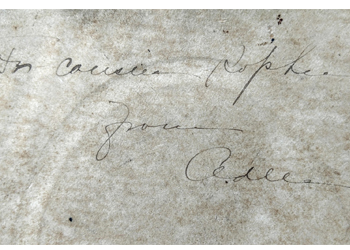 To cousin Sophie
From